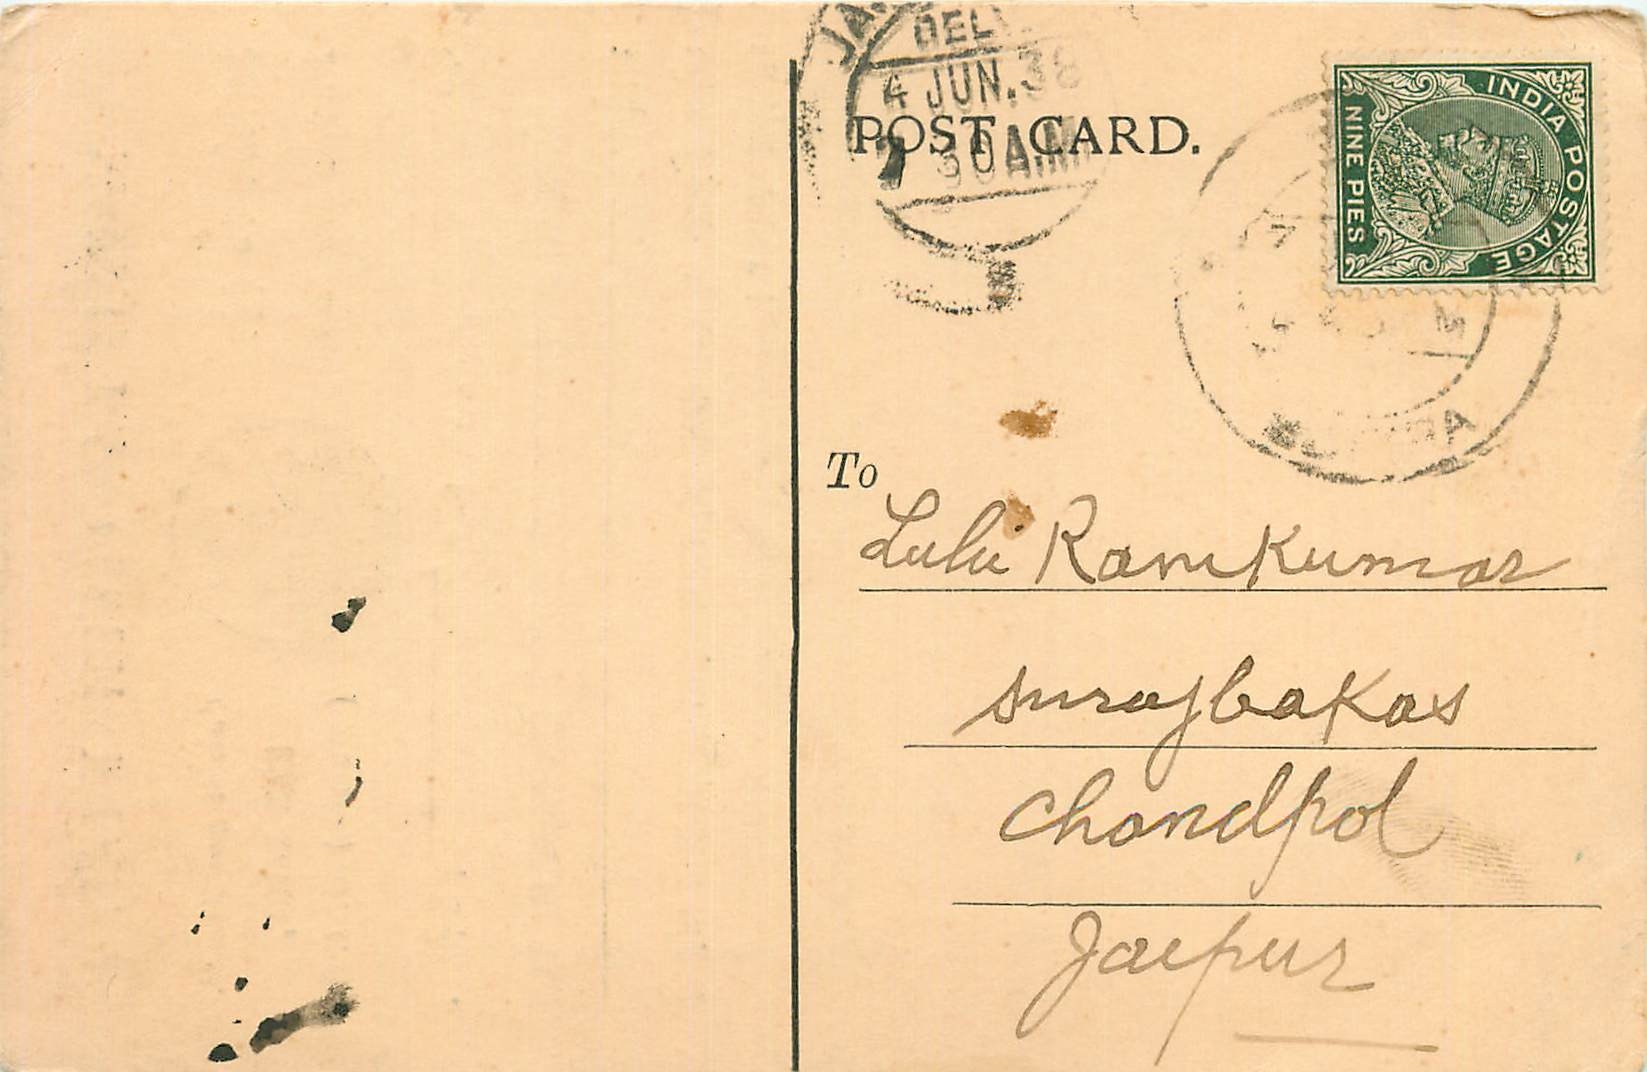 JA
DEL
4 JUN. 38
7 30 A.M
POST CARD.
INDIA POSTAGE
NINE PIES
To
Lulu Ramkumar
surajbakas
Chandpol
Jaipur